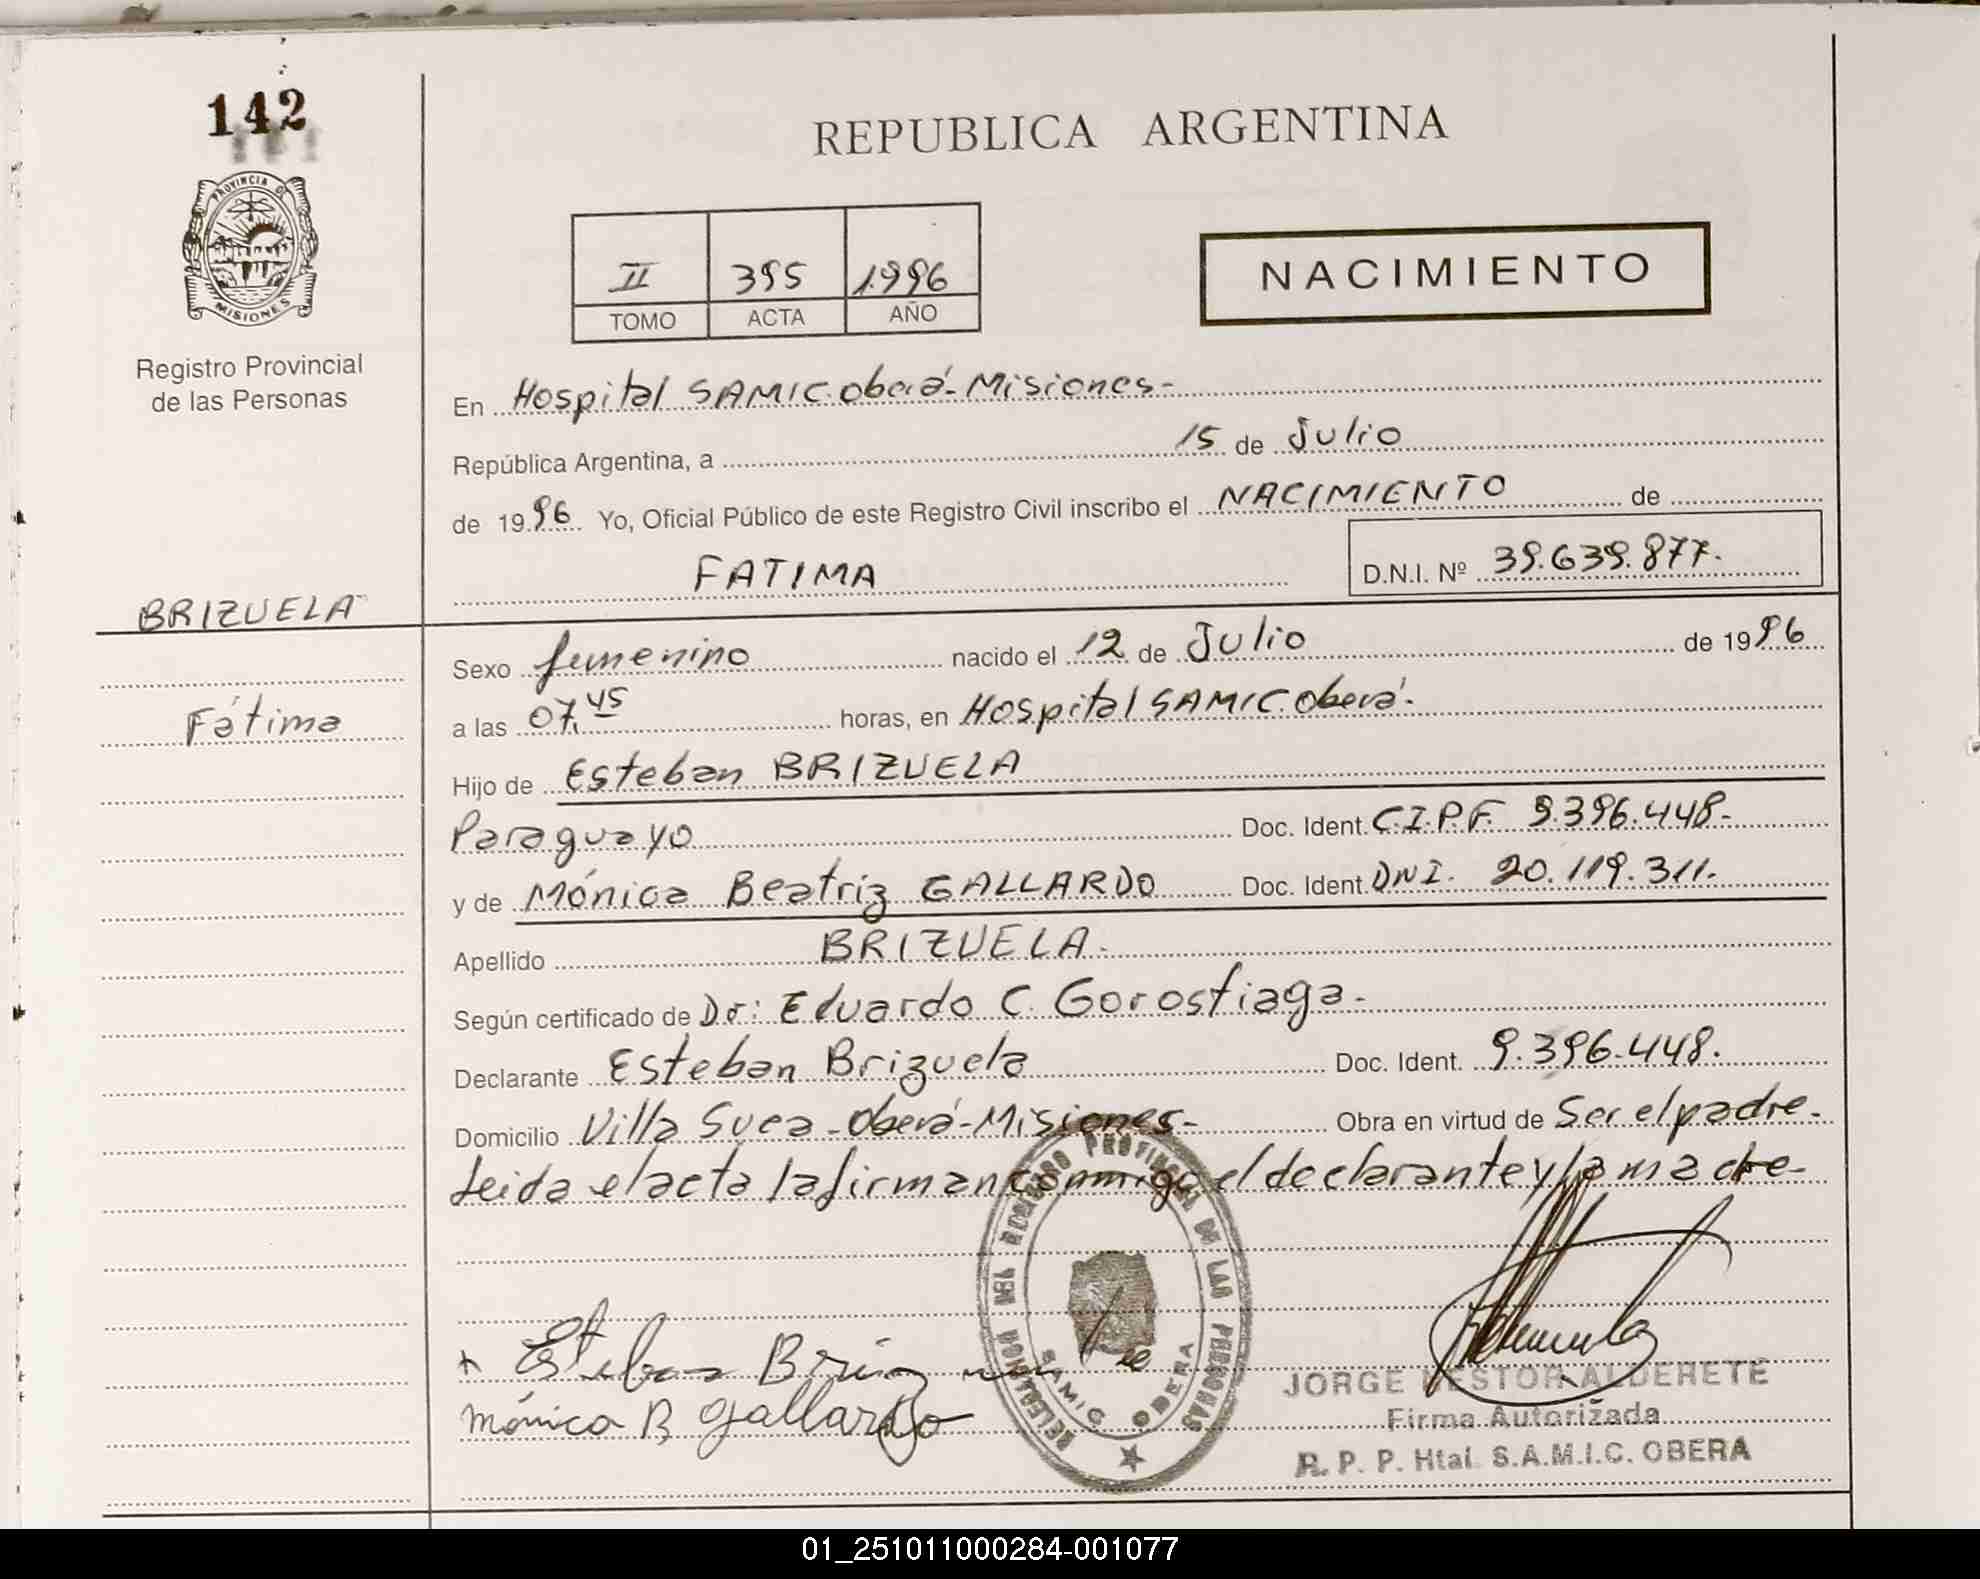 142
PROVINCIA DE
MISIONES
Registro Provincial
de las Personas
REPUBLICA ARGENTINA
II 395 1.996
TOMO ACTA AÑO
NACIMIENTO
En Hospital SAMIC Oberá - Misiones -
República Argentina, a 15 de Julio
de 1996 Yo, Oficial Público de este Registro Civil inscribo el NACIMIENTO de
FATIMA D.N.I. Nº 39.639.877.
BRIZUELA
Fátima
Sexo femenino nacido el 12 de Julio de 1996
a las 07,45 horas, en Hospital SAMIC Oberá.
Hijo de Esteban BRIZUELA
Paraguayo Doc. Ident. C.I.P.F. 9.396.448.
y de Mónica Beatriz GALLARDO Doc. Ident. DNI. 20.119.311.
Apellido BRIZUELA.
Según certificado de Dr: Eduardo C. Gorostiaga.
Declarante Esteban Brizuela Doc. Ident. 9.396.448.
Domicilio Villa Svea - Oberá - Misiones - Obra en virtud de Ser el padre.
Leida el acta la firman conmigo el declarante y la madre -
DELEGACION DEL REGISTRO PROVINCIAL DE LAS PERSONAS
SAMIC OBERA
Esteban Brizuela
Mónica B Gallardo
JORGE NESTOR ALDERETE
Firma Autorizada
R. P. P. Htal. S.A.M.I.C. OBERA
01_251011000284-001077